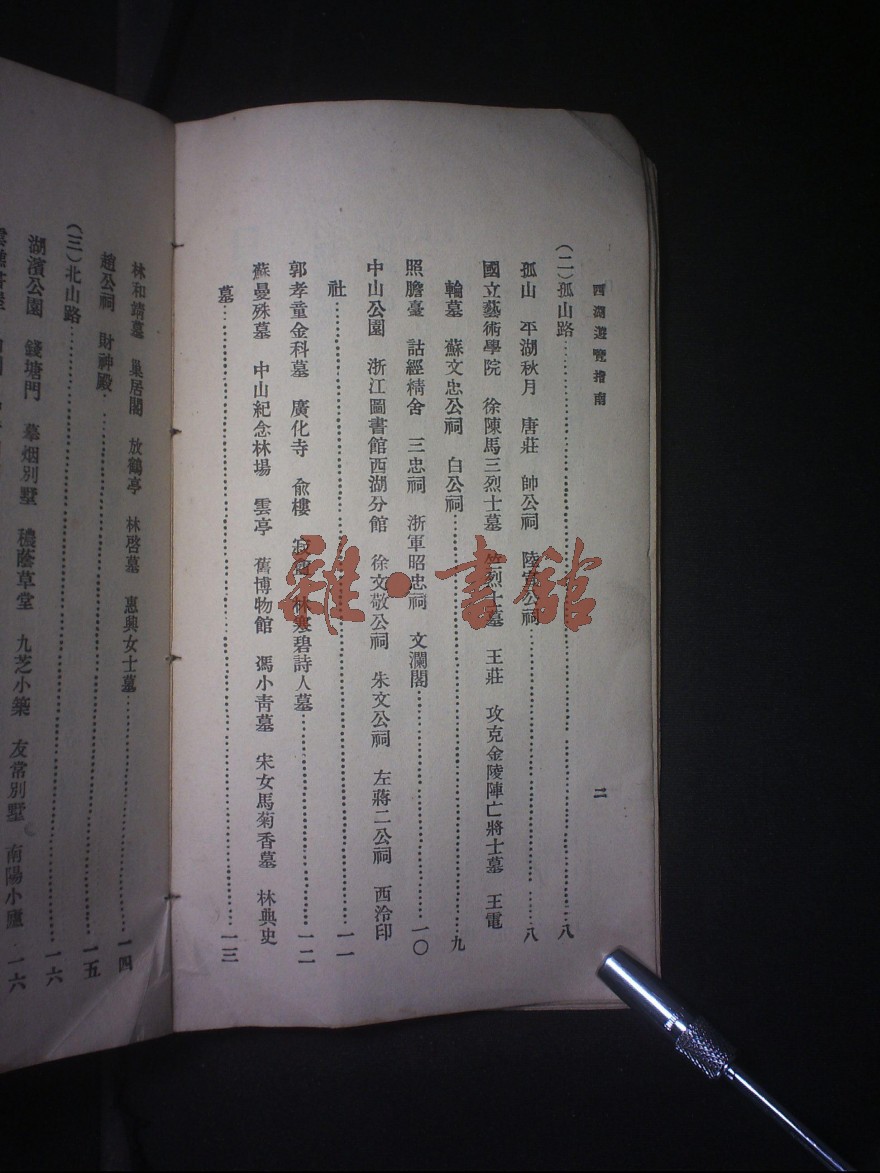 西湖遊覽指南 二
(二)孤山路……………………八
孤山 平湖秋月 唐莊 帥公祠 陸宣公祠……………………八
國立藝術學院 徐陳馬三烈士墓 竺烈士墓 王莊 攻克金陵陣亡將士墓 王電
輪墓 蘇文忠公祠 白公祠……………………九
照膽臺 詁經精舍 三忠祠 浙軍昭忠祠 文瀾閣……………………一〇
中山公園 浙江圖書館西湖分館 徐文敬公祠 朱文公祠 左蔣二公祠 西泠印
社……………………一一
郭孝童金科墓 廣化寺 俞樓 林寒碧詩人墓……………………一二
蘇曼殊墓 中山紀念林場 雲亭 舊博物館 馮小青墓 宋女馬菊香墓 林典史
墓……………………一三
林和靖墓 巢居閣 放鶴亭 林啓墓 惠興女士墓……………………一四
趙公祠 財神殿……………………一五
(三)北山路……………………一六
湖濱公園 錢塘門 摹烟別墅 穠蔭草堂 九芝小築 友常別墅 南陽小廬 一六
雜·書館